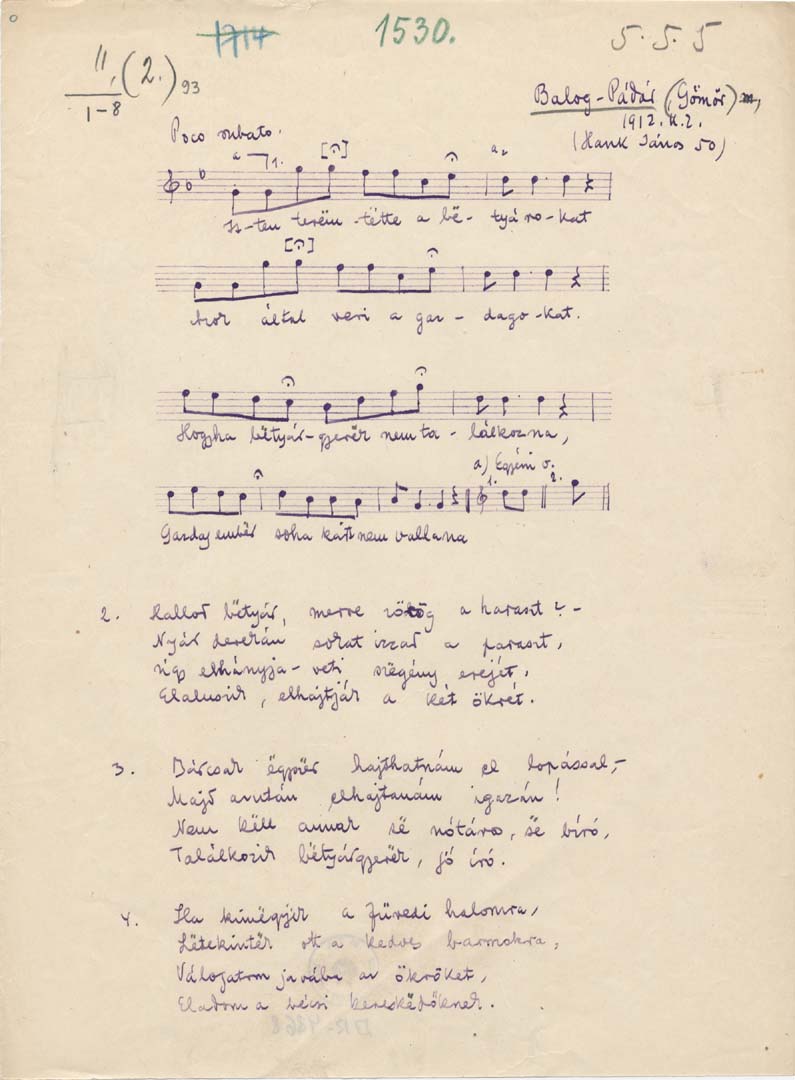 1714 1530. 5. 5. 5
II, (2.) 93
1-8
Balog-Pádár (Gömör) m,
1912. K.2.
(Hank János 50)
Poco rubato.
a 1. a2
Is-ten terëm-tëtte a bë-tyáro-kat
Azok által veri a gaz-dago-kat.
Hogyha bëtyár-gyerëk nem ta-lálkozna,
a) Egyéni v.
1. 2.
Gazdag embër soha kárt nem vallana
2. Hallod bëtyár, merre zörög a haraszt? -
Nyár derekán sokat izzad a paraszt,
Úgy elhányja-veti szëgény erejét,
Elaluszik, elhajtják a két ökrét.
3. Bárcsak ëgyszër hajthatnám el lopással,-
Majd azután elhajtanám igazán!
Nem këll annak së nótáros, së bíró,
Találkozik bëtyárgyerëk, jó író.
4. Ha kimëgyek a Füredi halomra,
Lëtekintëk ott a kedves barmokra,
Válogatom javába az ökröket,
Eladom a bécsi kereskëdőknek.